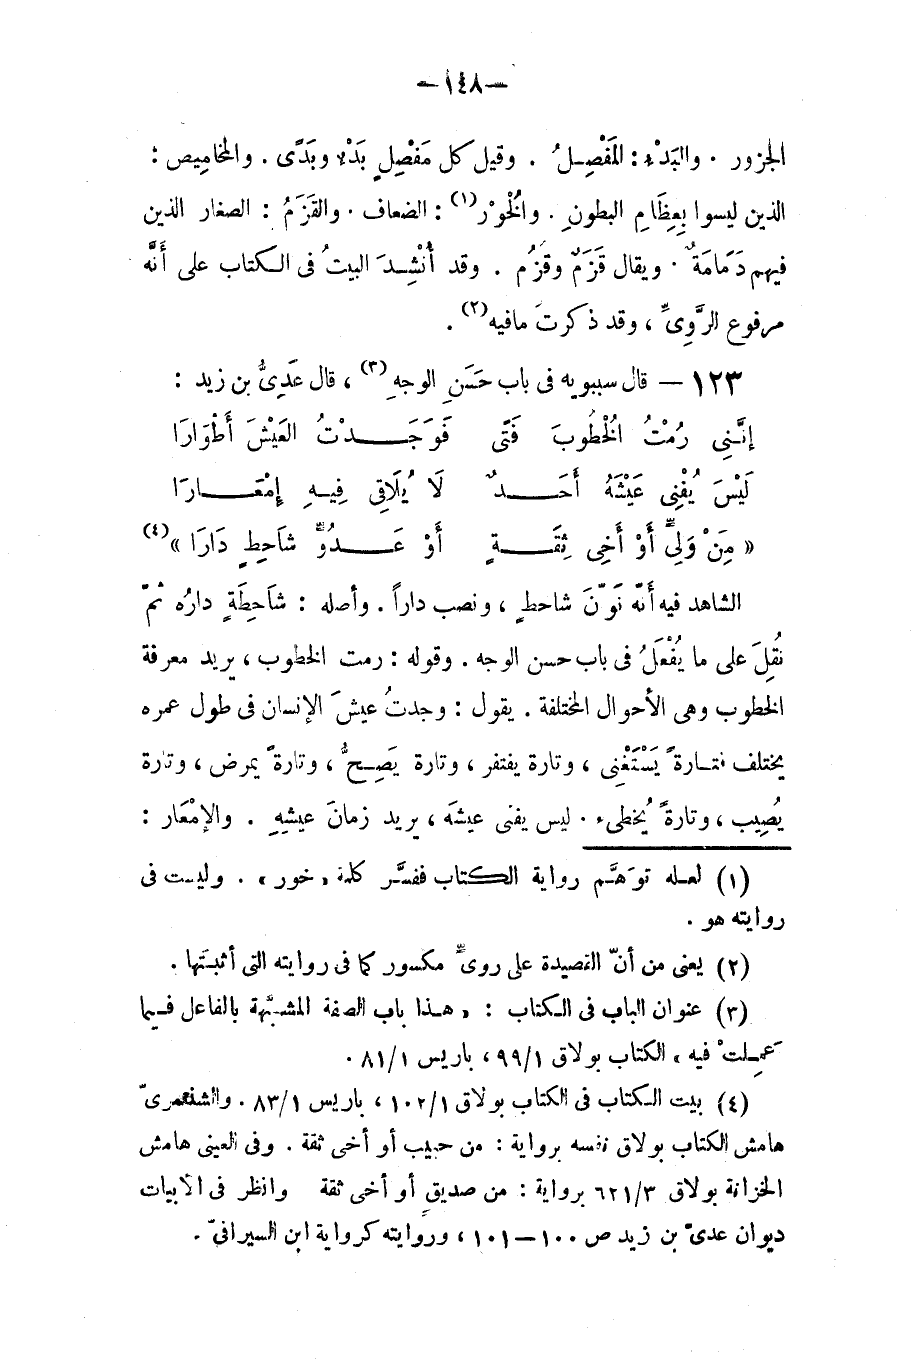 —١٤٨—
الجزور . والبَدْء : المَفْصِلُ . وقيل كل مَفْصِلٍ بَدْء وبَدًى . والمخاميص :
الذين ليسوا بِعِظَامِ البطونِ . والخُوْر(١) : الضعاف . والقَزَمُ : الصغار الذين
فيهم دَمَامَةٌ . ويقال قَزَمٌ وقُزُم . وقد أُنْشِدَ البيتُ فى الكتاب على أَنَّه
مرفوع الرَّوِىِّ ، وقد ذكرتَ مافيه(٢) .
١٢٣ — قال سيبويه فى باب حَسَنِ الوجهِ(٣) ، قال عَدِىُّ بن زيد :
إنَّنِى رُمْتُ الخُطُوبَ فَتًى فَوَجَدْتُ العَيْشَ أَطْوَارَا
لَيْسَ يُفْنِى عَيْشَهُ أَحَدٌ لَا يُلَاقِى فِيهِ إِمْعَارَا
« مِنْ وَلِىٍّ أَوْ أَخِى ثِقَةٍ أَوْ عَدُوٍّ شَاحِطٍ دَارَا »(٤)
الشاهد فيه أَنَّه نَوَّنَ شاحطٍ ، ونصب داراً . وأصله : شَاحِطَةٍ دارُه ثمّ
نُقِلَ على ما يُفْعَلُ فى باب حسن الوجه . وقوله : رمت الخطوب ، يريد معرفة
الخطوب وهى الأحوال المختلفة . يقول : وجدتُ عيشَ الإنسان فى طول عمره
يختلف فتارةً يَسْتَغْنِى ، وتارة يفتقر ، وتارة يَصِحُّ ، وتارةً يمرض ، وتارة
يُصِيب ، وتارةً يُخطىء . ليس يفنى عيشَه ، يريد زمانَ عيشِهِ . والإمْعَار :
(١) لعله توَهَّم رواية الكتاب ففسَّر كلمة « خور » . وليست فى
روايته هو .
(٢) يعنى من أنّ القصيدة على روىٍّ مكسور كما فى روايته التى أثبتَها .
(٣) عنوان الباب فى الكتاب : « هذا باب الصفة المشبَّهة بالفاعل فيما
عَمِلتْ فيه » الكتاب بولاق ١/٩٩ ، باريس ١/٨١ .
(٤) بيت الكتاب فى الكتاب بولاق ١/١٠٢ ، باريس ١/٨٣ . والشنتمرىّ
هامش الكتاب بولاق نفسه برواية : من حبيب أو أخى ثقة . وفى العينى هامش
الخزانة بولاق ٣/٦٢١ برواية : من صديقٍ أو أخى ثقة وانظر فى الأبيات
ديوان عدىّ بن زيد ص ١٠٠—١٠١ ، وروايته كرواية ابن السيرافىّ .